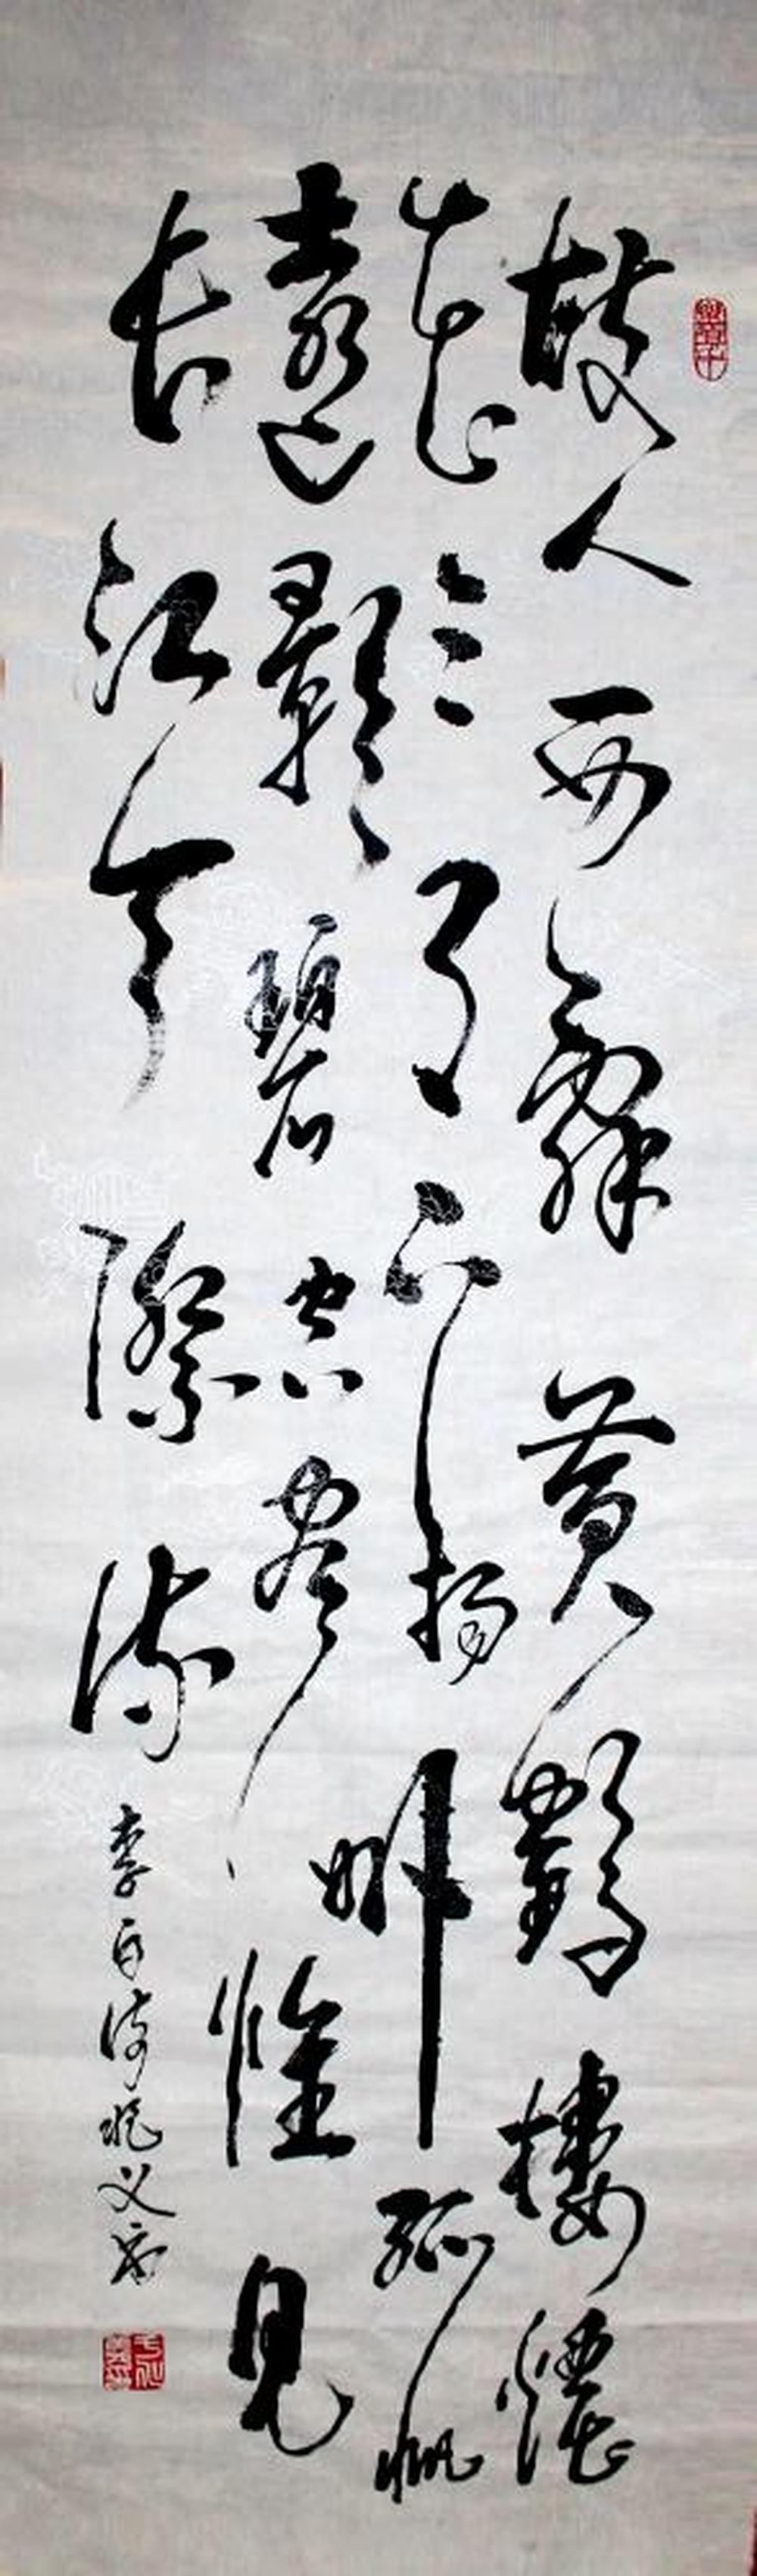 故人西辭黄鶴樓煙
花三月下揚州孤帆
遠影碧空盡惟見
長江天際流
李白詩